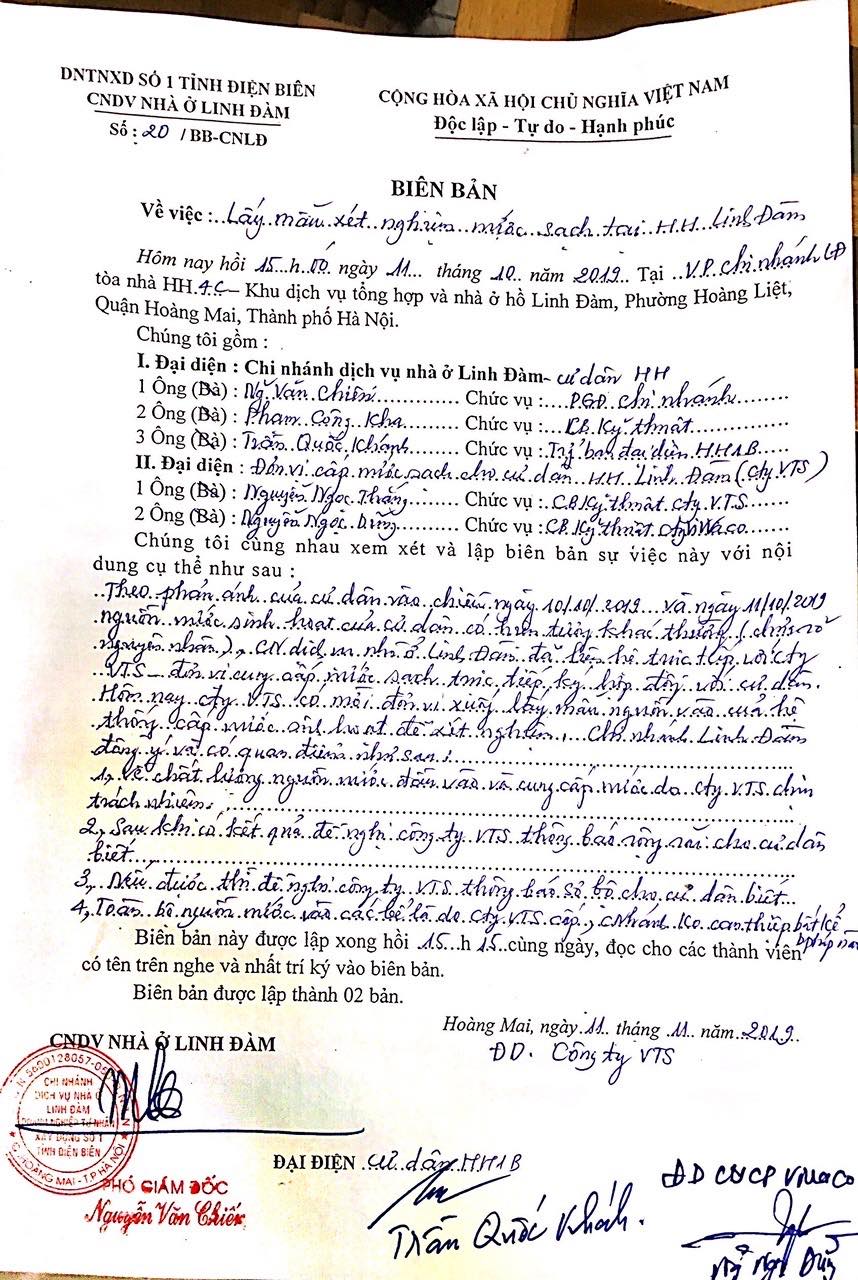 DNTNXD SỐ 1 TỈNH ĐIỆN BIÊN
CNDV NHÀ Ở LINH ĐÀM
Số : 20 / BB-CNLĐ
CỘNG HÒA XÃ HỘI CHỦ NGHĨA VIỆT NAM
Độc lập - Tự do - Hạnh phúc
BIÊN BẢN
Về việc : Lấy mẫu xét nghiệm nước sạch tại H.H Linh Đàm
Hôm nay hồi 15 h 00 ngày 11 tháng 10 năm 2019 Tại V.P chi nhánh LĐ
tòa nhà HH 4C – Khu dịch vụ tổng hợp và nhà ở hồ Linh Đàm, Phường Hoàng Liệt,
Quận Hoàng Mai, Thành phố Hà Nội.
Chúng tôi gồm :
I. Đại diện : Chi nhánh dịch vụ nhà ở Linh Đàm - cư dân HH
1 Ông (Bà) : Ng. Văn Chiến Chức vụ : P.GĐ chi nhánh
2 Ông (Bà) : Phạm Công Kha Chức vụ : CB. Kỹ thuật
3 Ông (Bà) : Trần Quốc Khánh Chức vụ : Trị ban đại diện HH1B
II. Đại diện : Đơn vị cấp nước sạch cho cư dân HH Linh Đàm (cty VTS)
1 Ông (Bà) : Nguyễn Ngọc Thắng Chức vụ : CB Kỹ thuật cty V.T.S
2 Ông (Bà) : Nguyễn Ngọc Dũng Chức vụ : CB. Kỹ thuật cty Viwaco
Chúng tôi cùng nhau xem xét và lập biên bản sự việc này với nội
dung cụ thể như sau :
Theo phản ánh của cư dân vào chiều ngày 10/10/2019 và ngày 11/10/2019
nguồn nước sinh hoạt của cư dân có hiện tượng khác thường (chưa rõ
nguyên nhân), CN dịch vụ nhà ở Linh Đàm đã liên hệ trực tiếp với cty
VTS - đơn vị cung cấp nước sạch trực tiếp ký hợp đồng với cư dân.
Hôm nay cty VTS có mời đơn vị xuống lấy mẫu nguồn vào của hệ
thống cấp nước sinh hoạt để xét nghiệm, Chi nhánh Linh Đàm
đồng ý và có quan điểm như sau :
1, Về chất lượng nguồn nước đầu vào và cung cấp nước do cty VTS chịu
trách nhiệm.
2, Sau khi có kết quả đề nghị công ty VTS thông báo rộng rãi cho cư dân
biết
3, Nếu được thì đề nghị công ty VTS thông báo sơ bộ cho cư dân biết
4, Toàn bộ nguồn nước vào các bể là do cty VTS cấp, CNhánh ko can thiệp bất kể
Biên bản này được lập xong hồi 15 h 15 cùng ngày, đọc cho các thành viên
có tên trên nghe và nhất trí ký vào biên bản.
Biên bản được lập thành 02 bản.
Hoàng Mai, ngày 11 tháng 11 năm 2019
CNDV NHÀ Ở LINH ĐÀM
ĐD. Công ty VTS
CHI NHÁNH
DỊCH VỤ NHÀ Ở
LINH ĐÀM
DOANH NGHIỆP TƯ NHÂN
XÂY DỰNG SỐ 1
TỈNH ĐIỆN BIÊN
Q. HOÀNG MAI - T.P HÀ NỘI
PHÓ GIÁM ĐỐC
Nguyễn Văn Chiến
ĐẠI ĐIỆN cư dân HH1B
Trần Quốc Khánh.
ĐD CTCP Viwaco